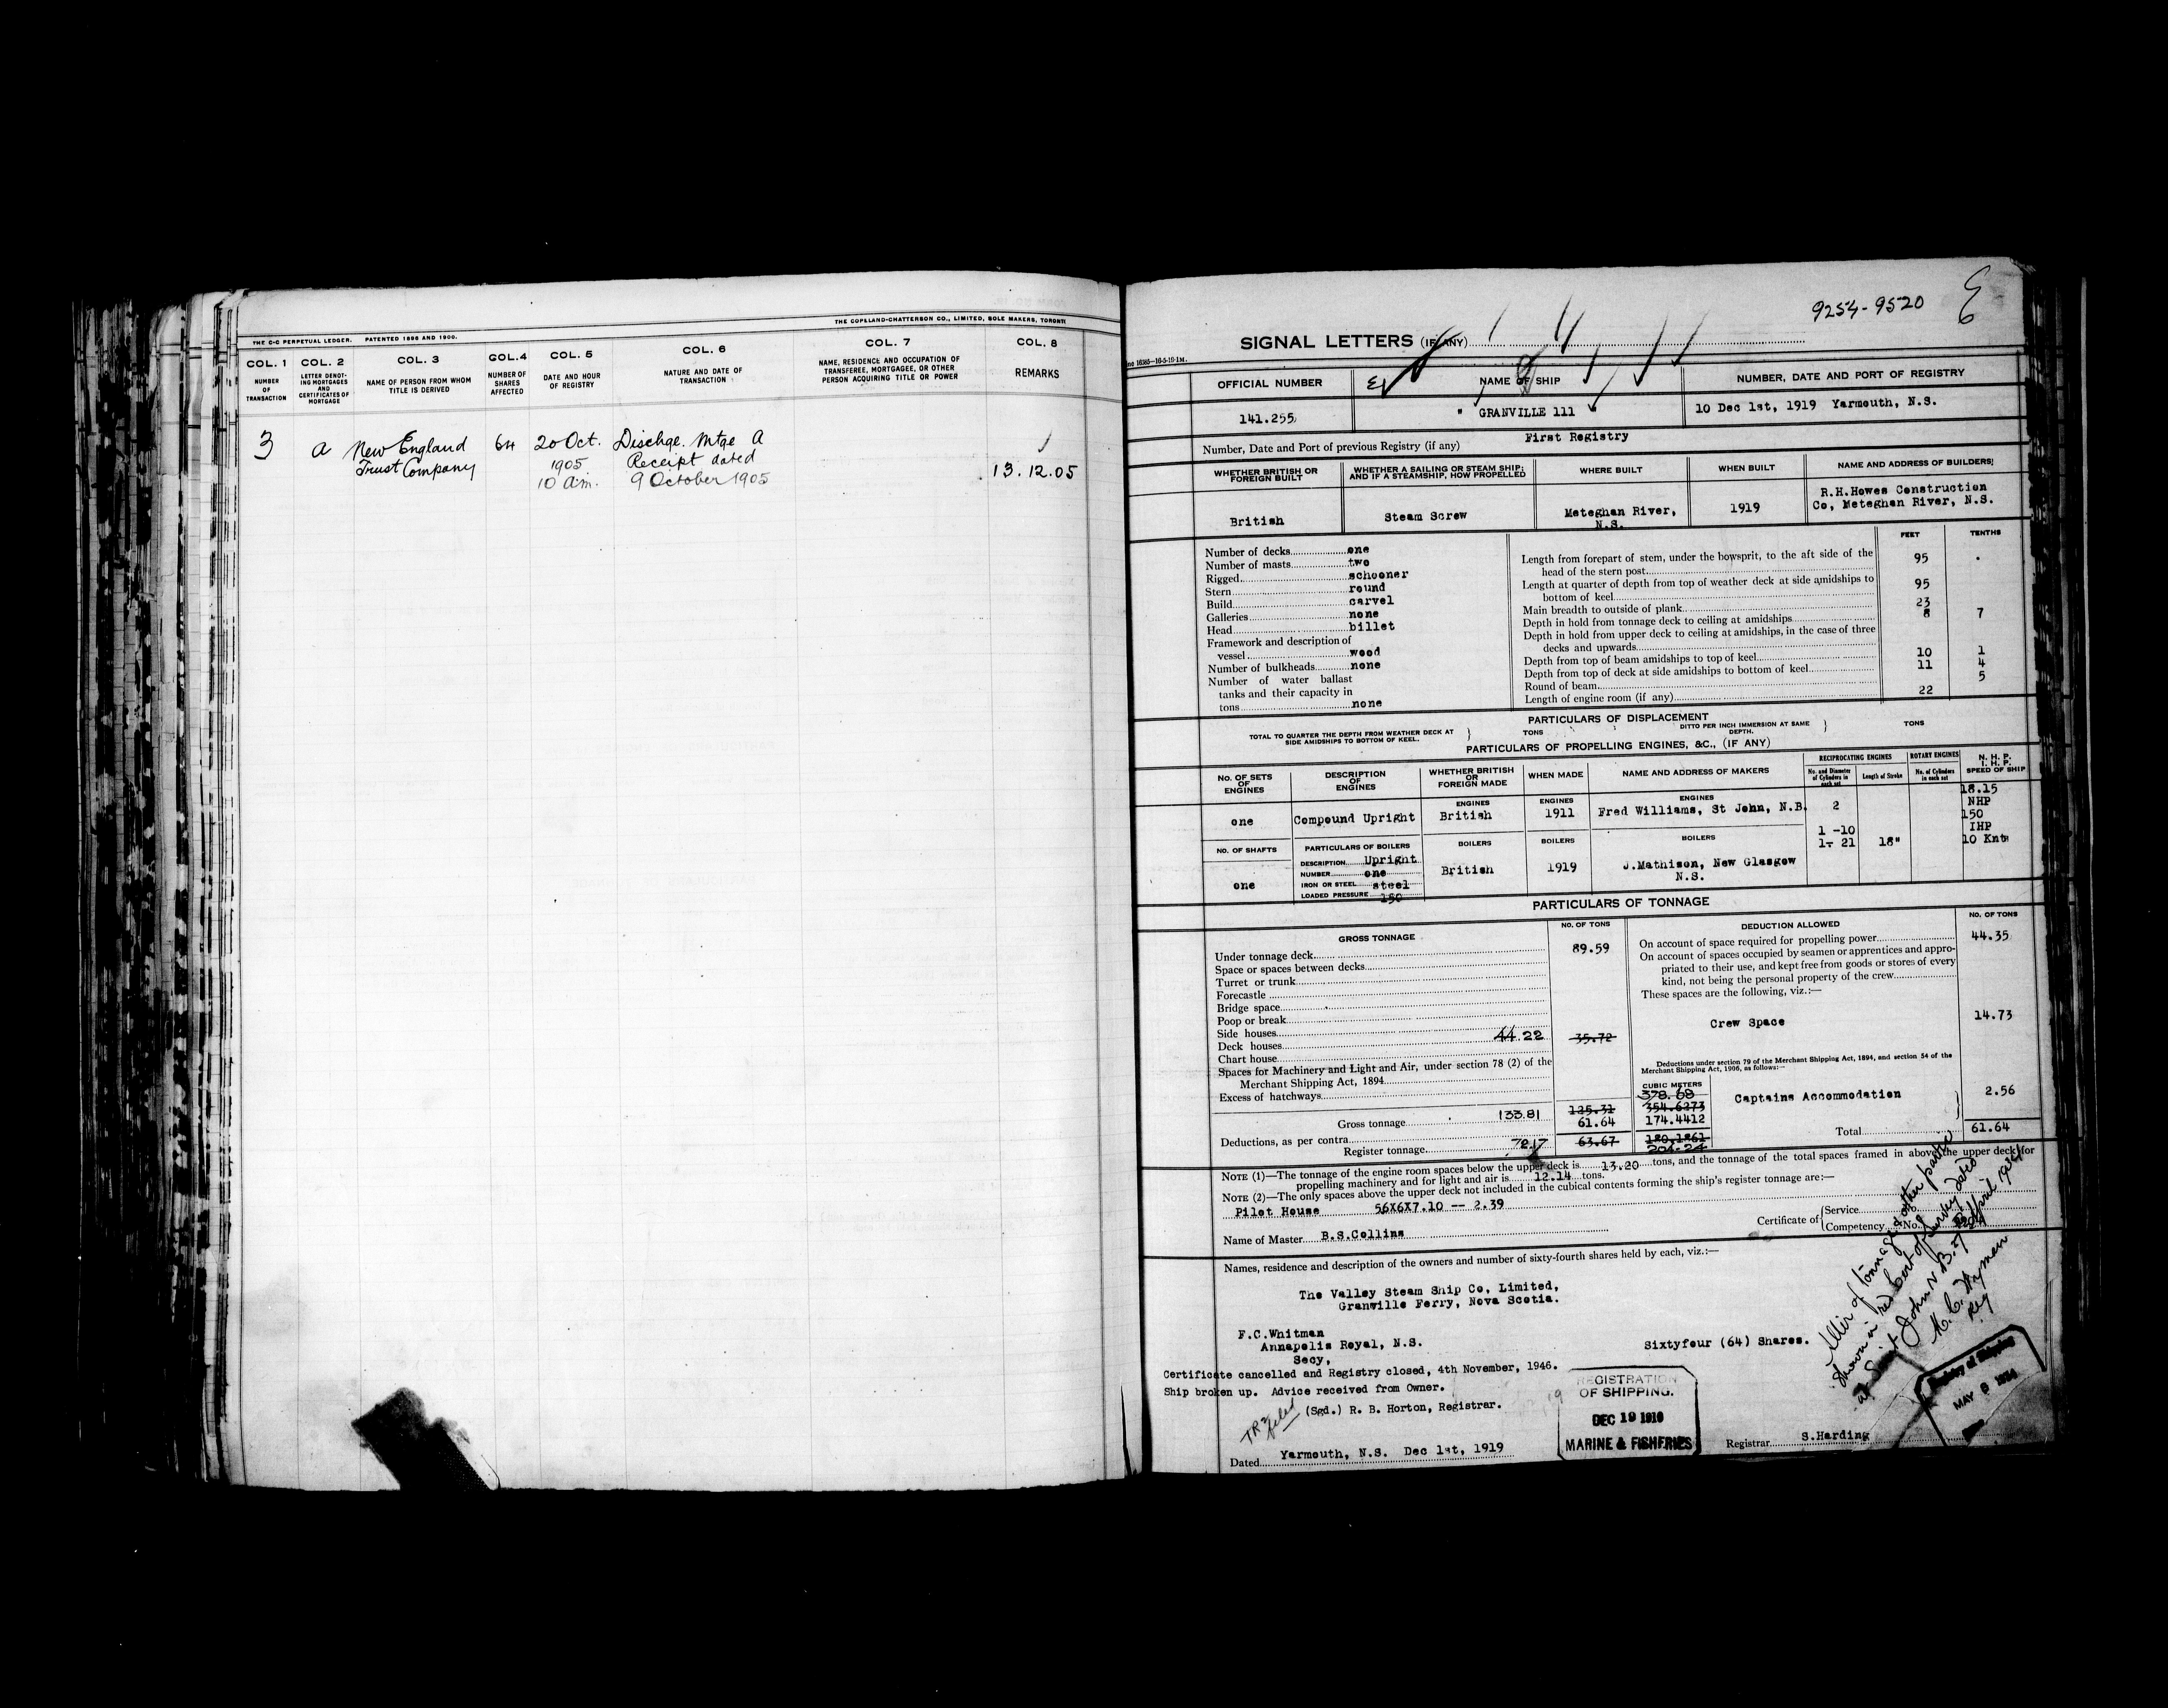 THE C-C PERPETUAL LEDGER. PATENTED 1896 AND 1900.
THE COPELAND-CHATTERSON CO., LIMITED, SOLE MAKERS, TORONTO
COL. 1 COL. 2 COL. 3 COL. 4 COL. 5 COL. 6 COL. 7 COL. 8
NUMBER OF TRANSACTION
LETTER DENOTING MORTGAGES AND CERTIFICATES OF MORTGAGE
NAME OF PERSON FROM WHOM TITLE IS DERIVED
NUMBER OF SHARES AFFECTED
DATE AND HOUR OF REGISTRY
NATURE AND DATE OF TRANSACTION
NAME, RESIDENCE AND OCCUPATION OF TRANSFEREE, MORTGAGEE, OR OTHER PERSON ACQUIRING TITLE OR POWER
REMARKS
3 A New England 64 20 Oct. Dischge. Mtge A
Trust Company 1905 Receipt dated
10 a.m. 9 October 1905 13.12.05
9254-9520
SIGNAL LETTERS (IF ANY)
OFFICIAL NUMBER NAME OF SHIP NUMBER, DATE AND PORT OF REGISTRY
141.255 " GRANVILLE 111 " 10 Dec 1st, 1919 Yarmouth, N.S.
Number, Date and Port of previous Registry (if any) First Registry
WHETHER BRITISH OR FOREIGN BUILT
WHETHER A SAILING OR STEAM SHIP; AND IF A STEAMSHIP, HOW PROPELLED
WHERE BUILT
WHEN BUILT
NAME AND ADDRESS OF BUILDERS
British Steam Screw Meteghan River, N.S. 1919 R.H.Howes Construction
Co, Meteghan River, N.S.
FEET TENTHS
Number of decks one
Number of masts two
Rigged schooner
Stern round
Build carvel
Galleries none
Head billet
Framework and description of
vessel wood
Number of bulkheads none
Number of water ballast
tanks and their capacity in
tons none
Length from forepart of stem, under the bowsprit, to the aft side of the
head of the stern post 95 .
Length at quarter of depth from top of weather deck at side amidships to
bottom of keel 95
Main breadth to outside of plank 23
Depth in hold from tonnage deck to ceiling at amidships 8 7
Depth in hold from upper deck to ceiling at amidships, in the case of three
decks and upwards
Depth from top of beam amidships to top of keel 10 1
Depth from top of deck at side amidships to bottom of keel 11 4
Round of beam 5
Length of engine room (if any) 22
PARTICULARS OF DISPLACEMENT
TOTAL TO QUARTER THE DEPTH FROM WEATHER DECK AT SIDE AMIDSHIPS TO BOTTOM OF KEEL. TONS DITTO PER INCH IMMERSION AT SAME DEPTH. TONS
PARTICULARS OF PROPELLING ENGINES, &C., (IF ANY)
NO. OF SETS OF ENGINES
DESCRIPTION OF ENGINES
WHETHER BRITISH OR FOREIGN MADE
WHEN MADE
NAME AND ADDRESS OF MAKERS
RECIPROCATING ENGINES
No. and Diameter of Cylinders in each set
Length of Stroke
ROTARY ENGINES
No. of Cylinders in each set
N. H. P.
I. H. P.
SPEED OF SHIP
ENGINES ENGINES ENGINES
one Compound Upright British 1911 Fred Williams, St John, N.B. 2
18.15
NHP
150
IHP
10 Knts
1 -10
1- 21 18"
NO. OF SHAFTS PARTICULARS OF BOILERS BOILERS BOILERS BOILERS
one
DESCRIPTION Upright
NUMBER one
IRON OR STEEL steel
LOADED PRESSURE 150
British 1919 J.Mathison, New Glasgow
N.S.
PARTICULARS OF TONNAGE
GROSS TONNAGE NO. OF TONS
Under tonnage deck 89.59
Space or spaces between decks
Turret or trunk
Forecastle
Bridge space
Poop or break
Side houses
Deck houses 44.22 35.72
Chart house
Spaces for Machinery and Light and Air, under section 78 (2) of the
Merchant Shipping Act, 1894
Excess of hatchways
CUBIC METERS
378.68
Gross tonnage 133.81 125.31 354.6273
Deductions, as per contra 61.64 174.4412
Register tonnage 72.17 63.67 180.1861
204.24
DEDUCTION ALLOWED NO. OF TONS
On account of space required for propelling power 44.35
On account of spaces occupied by seamen or apprentices and appro-
priated to their use, and kept free from goods or stores of every
kind, not being the personal property of the crew
These spaces are the following, viz.:—
Crew Space 14.73
Deductions under section 79 of the Merchant Shipping Act, 1894, and section 54 of the
Merchant Shipping Act, 1906, as follows:—
Captains Accommodation 2.56
Total 61.64
NOTE (1)—The tonnage of the engine room spaces below the upper deck is 13.20 tons, and the tonnage of the total spaces framed in above the upper deck for
propelling machinery and for light and air is 12.14 tons.
NOTE (2)—The only spaces above the upper deck not included in the cubical contents forming the ship's register tonnage are:—
Pilot House 56X6X7.10 -- 2.39
Name of Master B.S.Collins
Certificate of Service
Competency No.
Names, residence and description of the owners and number of sixty-fourth shares held by each, viz.:—
The Valley Steam Ship Co, Limited,
Granville Ferry, Nova Scotia.
F.C.Whitman
Annapolis Royal, N.S.
Secy,
Sixtyfour (64) Shares.
Certificate cancelled and Registry closed, 4th November, 1946.
Ship broken up. Advice received from Owner.
(Sgd.) R. B. Horton, Registrar.
REGISTRATION
OF SHIPPING.
DEC 19 1919
MARINE & FISHERIES
Dated Yarmouth, N.S. Dec 1st, 1919
Registrar S.Harding
Registry of Shipping
MAY 8